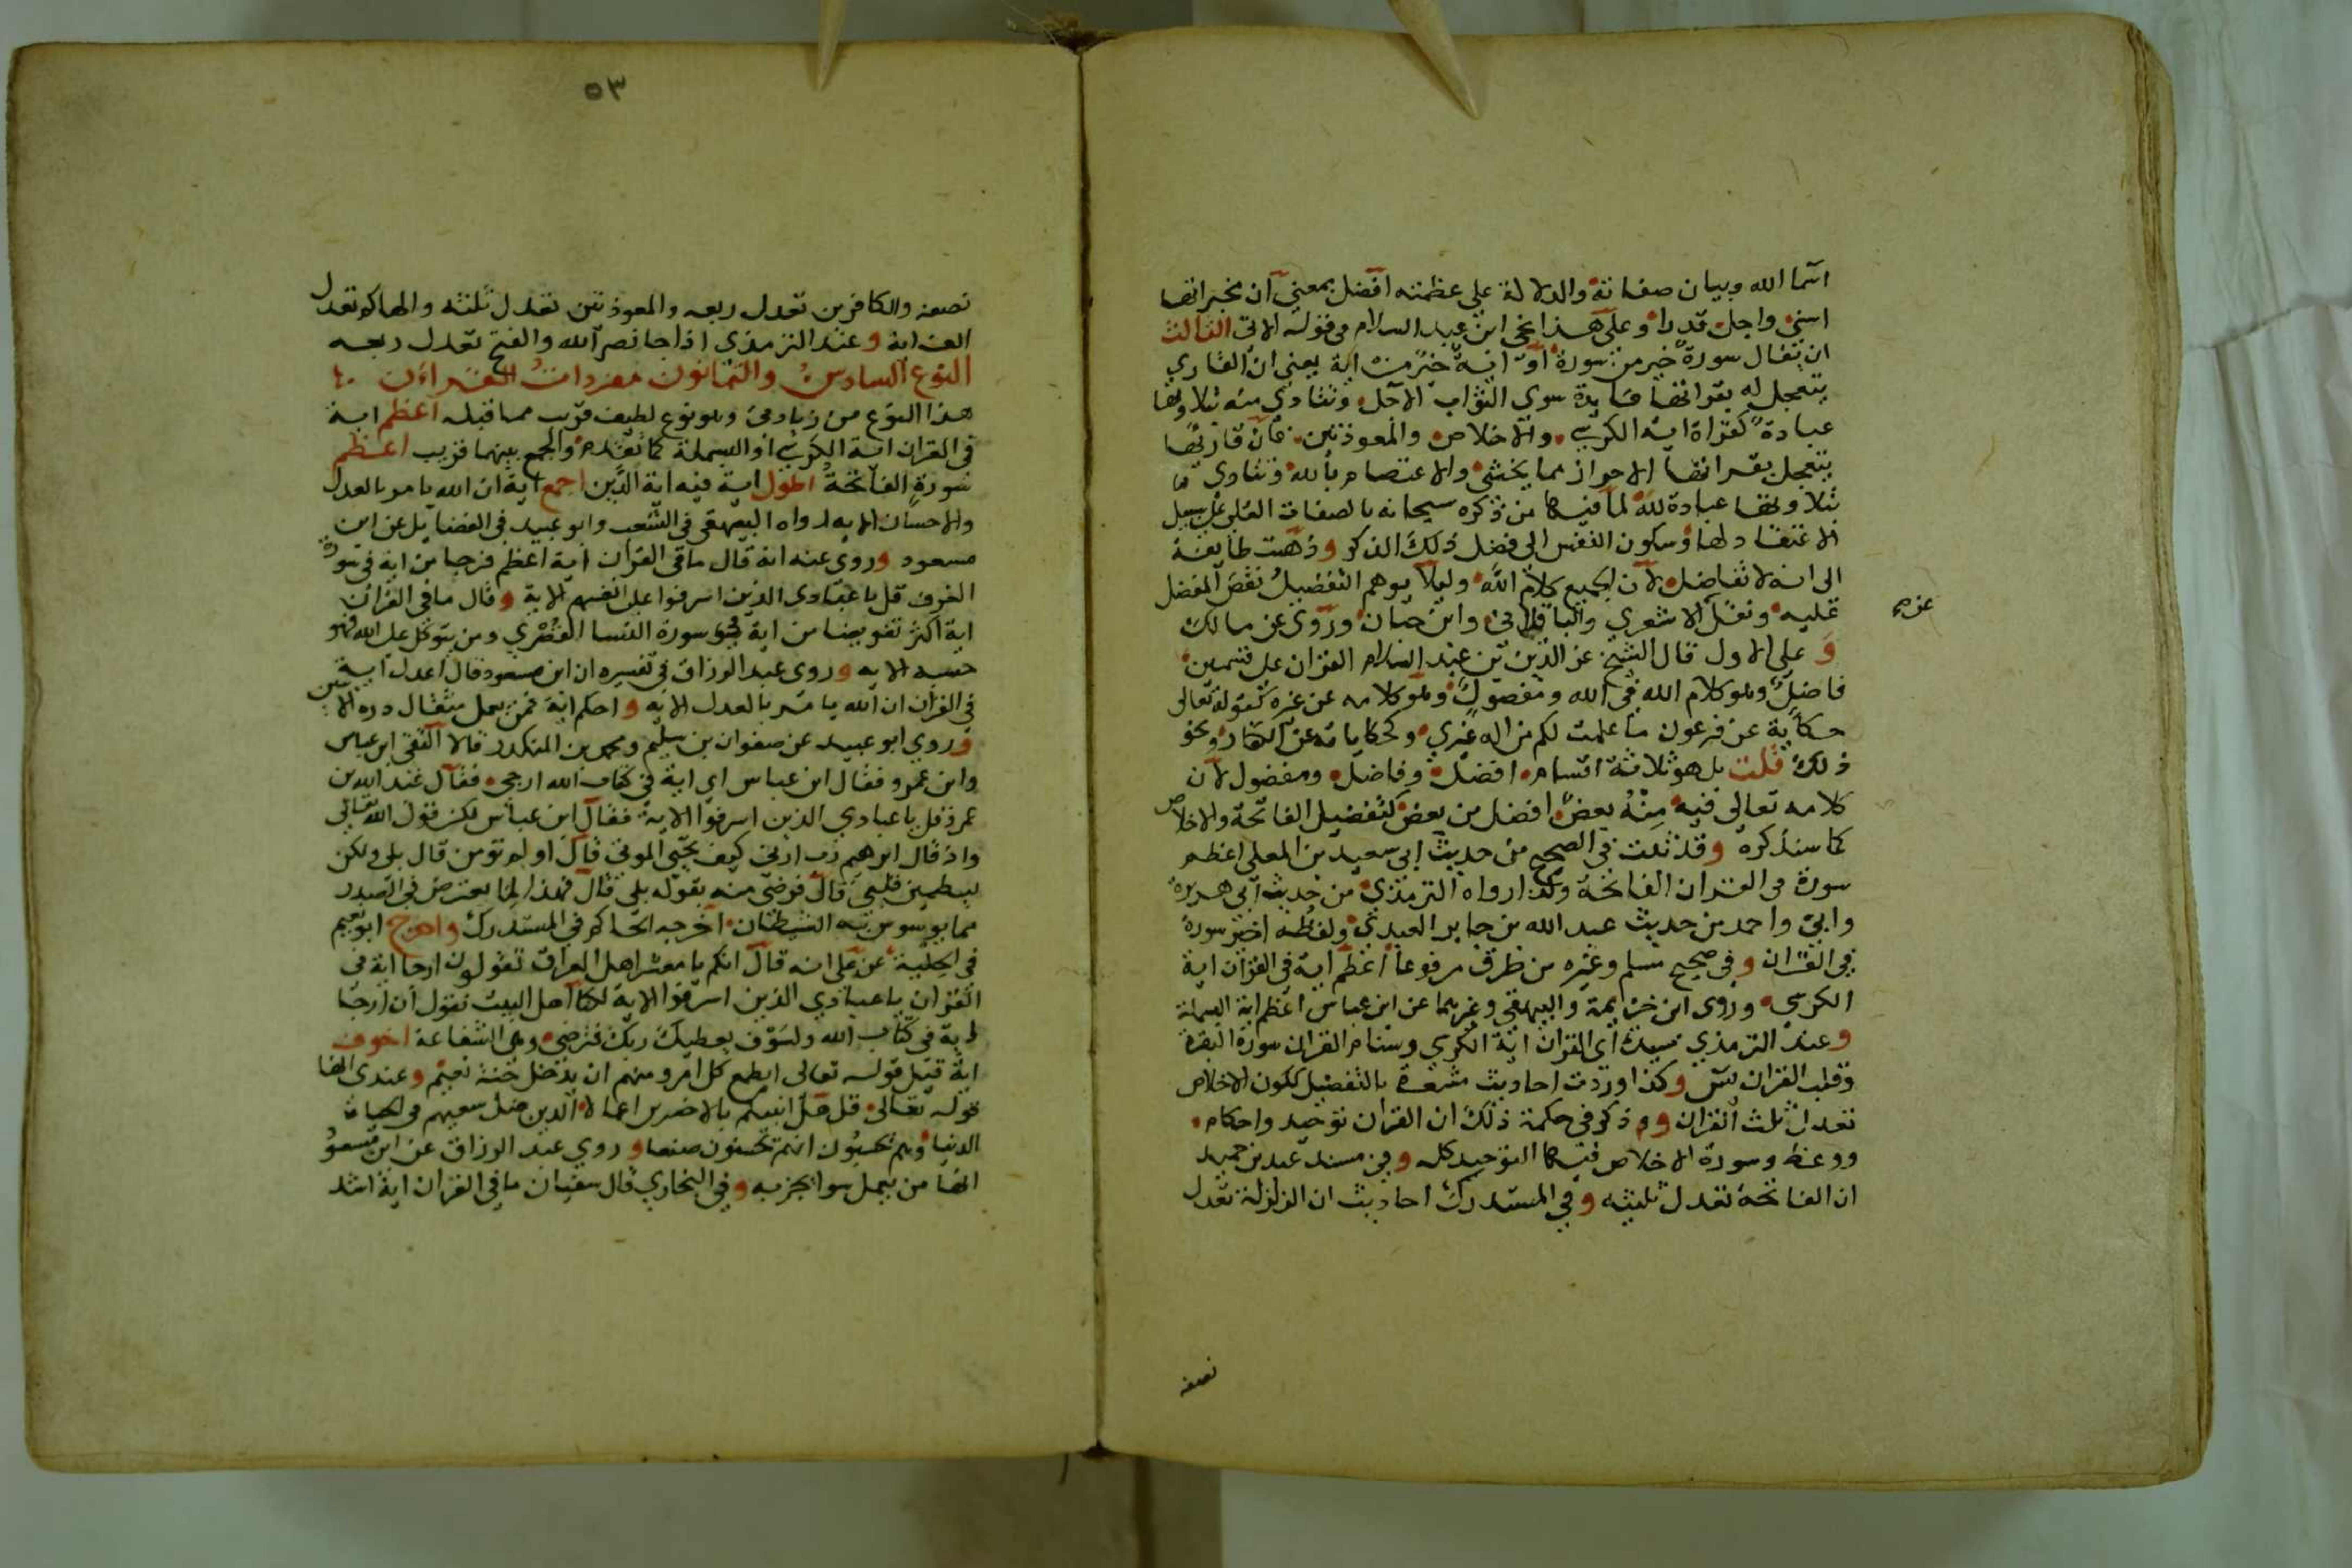 اسما الله وبيان صفاته والدلالة على عظمته افضل بمعنى ان مخبراتها
اسنى واجل قدرا وعلى هذا نحى ابن عبد السلام في قوله الاتي الثالث
ان يقال سورة خير من سورة او اية خير من اية يعني ان القاري
يتعجل له بقراتها فايدة سوى الثواب الآجل وتتادى منه بتلاوتها
عبادة كقراة اية الكرسي والاخلاص والمعوذتين فان قاريها
يتعجل بقراتها الاحتراز مما يخشى والاعتصام بالله وتتادى
بتلاوتها عبادة لله لما فيها من ذكره سبحانه بالصفات العلى على سبيل
الاعتقاد لها وسكون النفس الى فضل ذلك الذكر وذهبت طايفة
الى انه لا تفاضل لان الجميع كلام الله وليلا يوهم التفضيل نقص المفضل
عليه ونقل الاشعري والباقلاني وابن حبان وروى عن مالك
وعلى الاول قال الشيخ عز الدين بن عبد السلام القران على قسمين
فاضل وهو كلام الله في الله ومفضول وهو كلامه عن غيره كقوله تعالى
حكاية عن فرعون ما علمت لكم من اله غيري وكحكاياته عن الكفار ونحو
ذلك قلت بل هو ثلاثة اقسام افضل وفاضل ومفضول لان
كلامه تعالى فيه منه بعض افضل من بعض كتفضيل الفاتحة والاخلاص
كما سنذكره وقد ثبت في الصحيح من حديث ابي سعيد بن المعلى اعظم
سورة في القران الفاتحة وكذا رواه الترمذي من حديث ابي هريرة
وابي واحمد من حديث عبد الله بن جابر العبدي ولفظه اخير سورة
في القران وفي صحيح مسلم وغيره من طرق مرفوعا اعظم اية في القران اية
الكرسي وروى ابن خزيمة والبيهقي وغيرهما عن ابن عباس اعظم اية البسملة
وعند الترمذي سيدة اي القران اية الكرسي وسنام القران سورة البقرة
وقلب القران يس وكذا وردت احاديث مشعرة بالتفضيل ككون الاخلاص
تعدل ثلث القران وذكر في حكمة ذلك ان القران توحيد واحكام
ووعظ وسورة الاخلاص فيها التوحيد كله وفي مسند عبد بن حميد
ان الفاتحة تعدل ثلثيه وفي المستدرك احاديث ان الزلزلة تعدل
نصفه
٥٣
نصفه والكافرين تعدل ربعه والمعوذتين تعدل ثلثه والهاكم تعدل
الف اية وعند الترمذي اذا جا نصر الله والفتح تعدل ربعه
النوع السادس والثمانون مفردات القران
هذا النوع من زيادتي وهو نوع لطيف قريب مما قبله اعظم اية
في القران اية الكرسي او البسملة كما تقدم والجمع بينهما قريب اعظم
سورة الفاتحة اطول اية فيه اية الدين اجمع اية ان الله يامر بالعدل
والاحسان الاية رواه البيهقي في الشعب وابو عبيد في الفضايل عن ابن
مسعود وروي عنه انه قال ما في القران اية اعظم فرجا من اية في سورة
الغرف قل يا عبادي الذين اسرفوا على انفسهم الاية وقال ما في القران
اية اكثر تفويضا من اية في سورة النسا القصرى ومن يتوكل على الله فهو
حسبه الاية وروى عبد الرزاق في تفسيره ان ابن مسعود قال اعدل اية
في القران ان الله يامر بالعدل الاية واحكم اية فمن يعمل مثقال ذرة الايتين
وروى ابو عبيد عن صفوان بن سليم ومحمد بن المنكدر قالا التقى ابن عباس
وابن عمرو فقال ابن عباس اي اية في كتاب الله ارجى فقال عبد الله بن
عمرو قل يا عبادي الذين اسرفوا الاية فقال ابن عباس لكن قول الله تعالى
واذ قال ابرهيم رب ارني كيف تحيي الموتى قال او لم تؤمن قال بلى ولكن
ليطمين قلبي قال فرضي منه بقوله بلى قال فهذا لما يعترض في الصدر
مما يوسوس به الشيطان اخرجه الحاكم في المستدرك واخرج ابو نعيم
في الحلية عن علي انه قال انكم يا معشر اهل العراق تقولون ارجا اية في
القران يا عبادي الذين اسرفوا الاية لكنا اهل البيت نقول ان ارجا
اية في كتاب الله ولسوف يعطيك ربك فترضى وهي الشفاعة اخوف
اية قيل قوله تعالى ايطمع كل امرو منهم ان يدخل جنة نعيم وعندي انها
قوله تعالى قل هل انبيكم بالاخسرين اعمالا الذين ضل سعيهم في الحياة
الدنيا وهم يحسبون انهم يحسنون صنعا وروى عبد الرزاق عن ابن مسعود
انها من يعمل سوا يجز به وفي البخاري قال سفيان ما في القران اية اشد